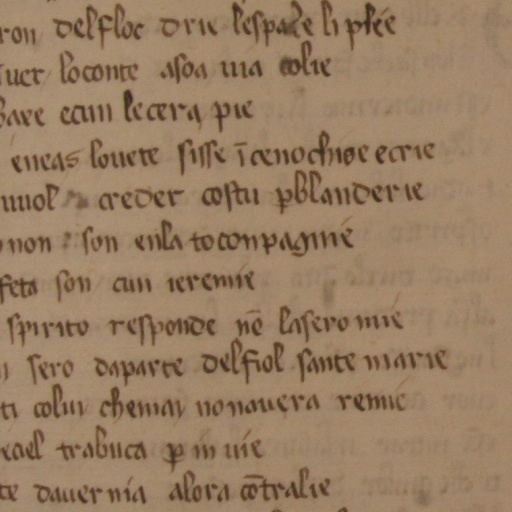 ron delfloc drie lespale li pſee
uet loconte asoa uia colie
baxe ecun lecerq pie
eneas louete sisse īcenochioe ecrie
uuol creder costu ꝑblanderie
non son enla toconpagnie
feta son cun ieremie
spirito responde nō lasero mie
sero daparte delfiol sante marie
ti colui chemai nonauera remie
ecael trabuca ꝑ m uie
te dauernia alora cōtralie